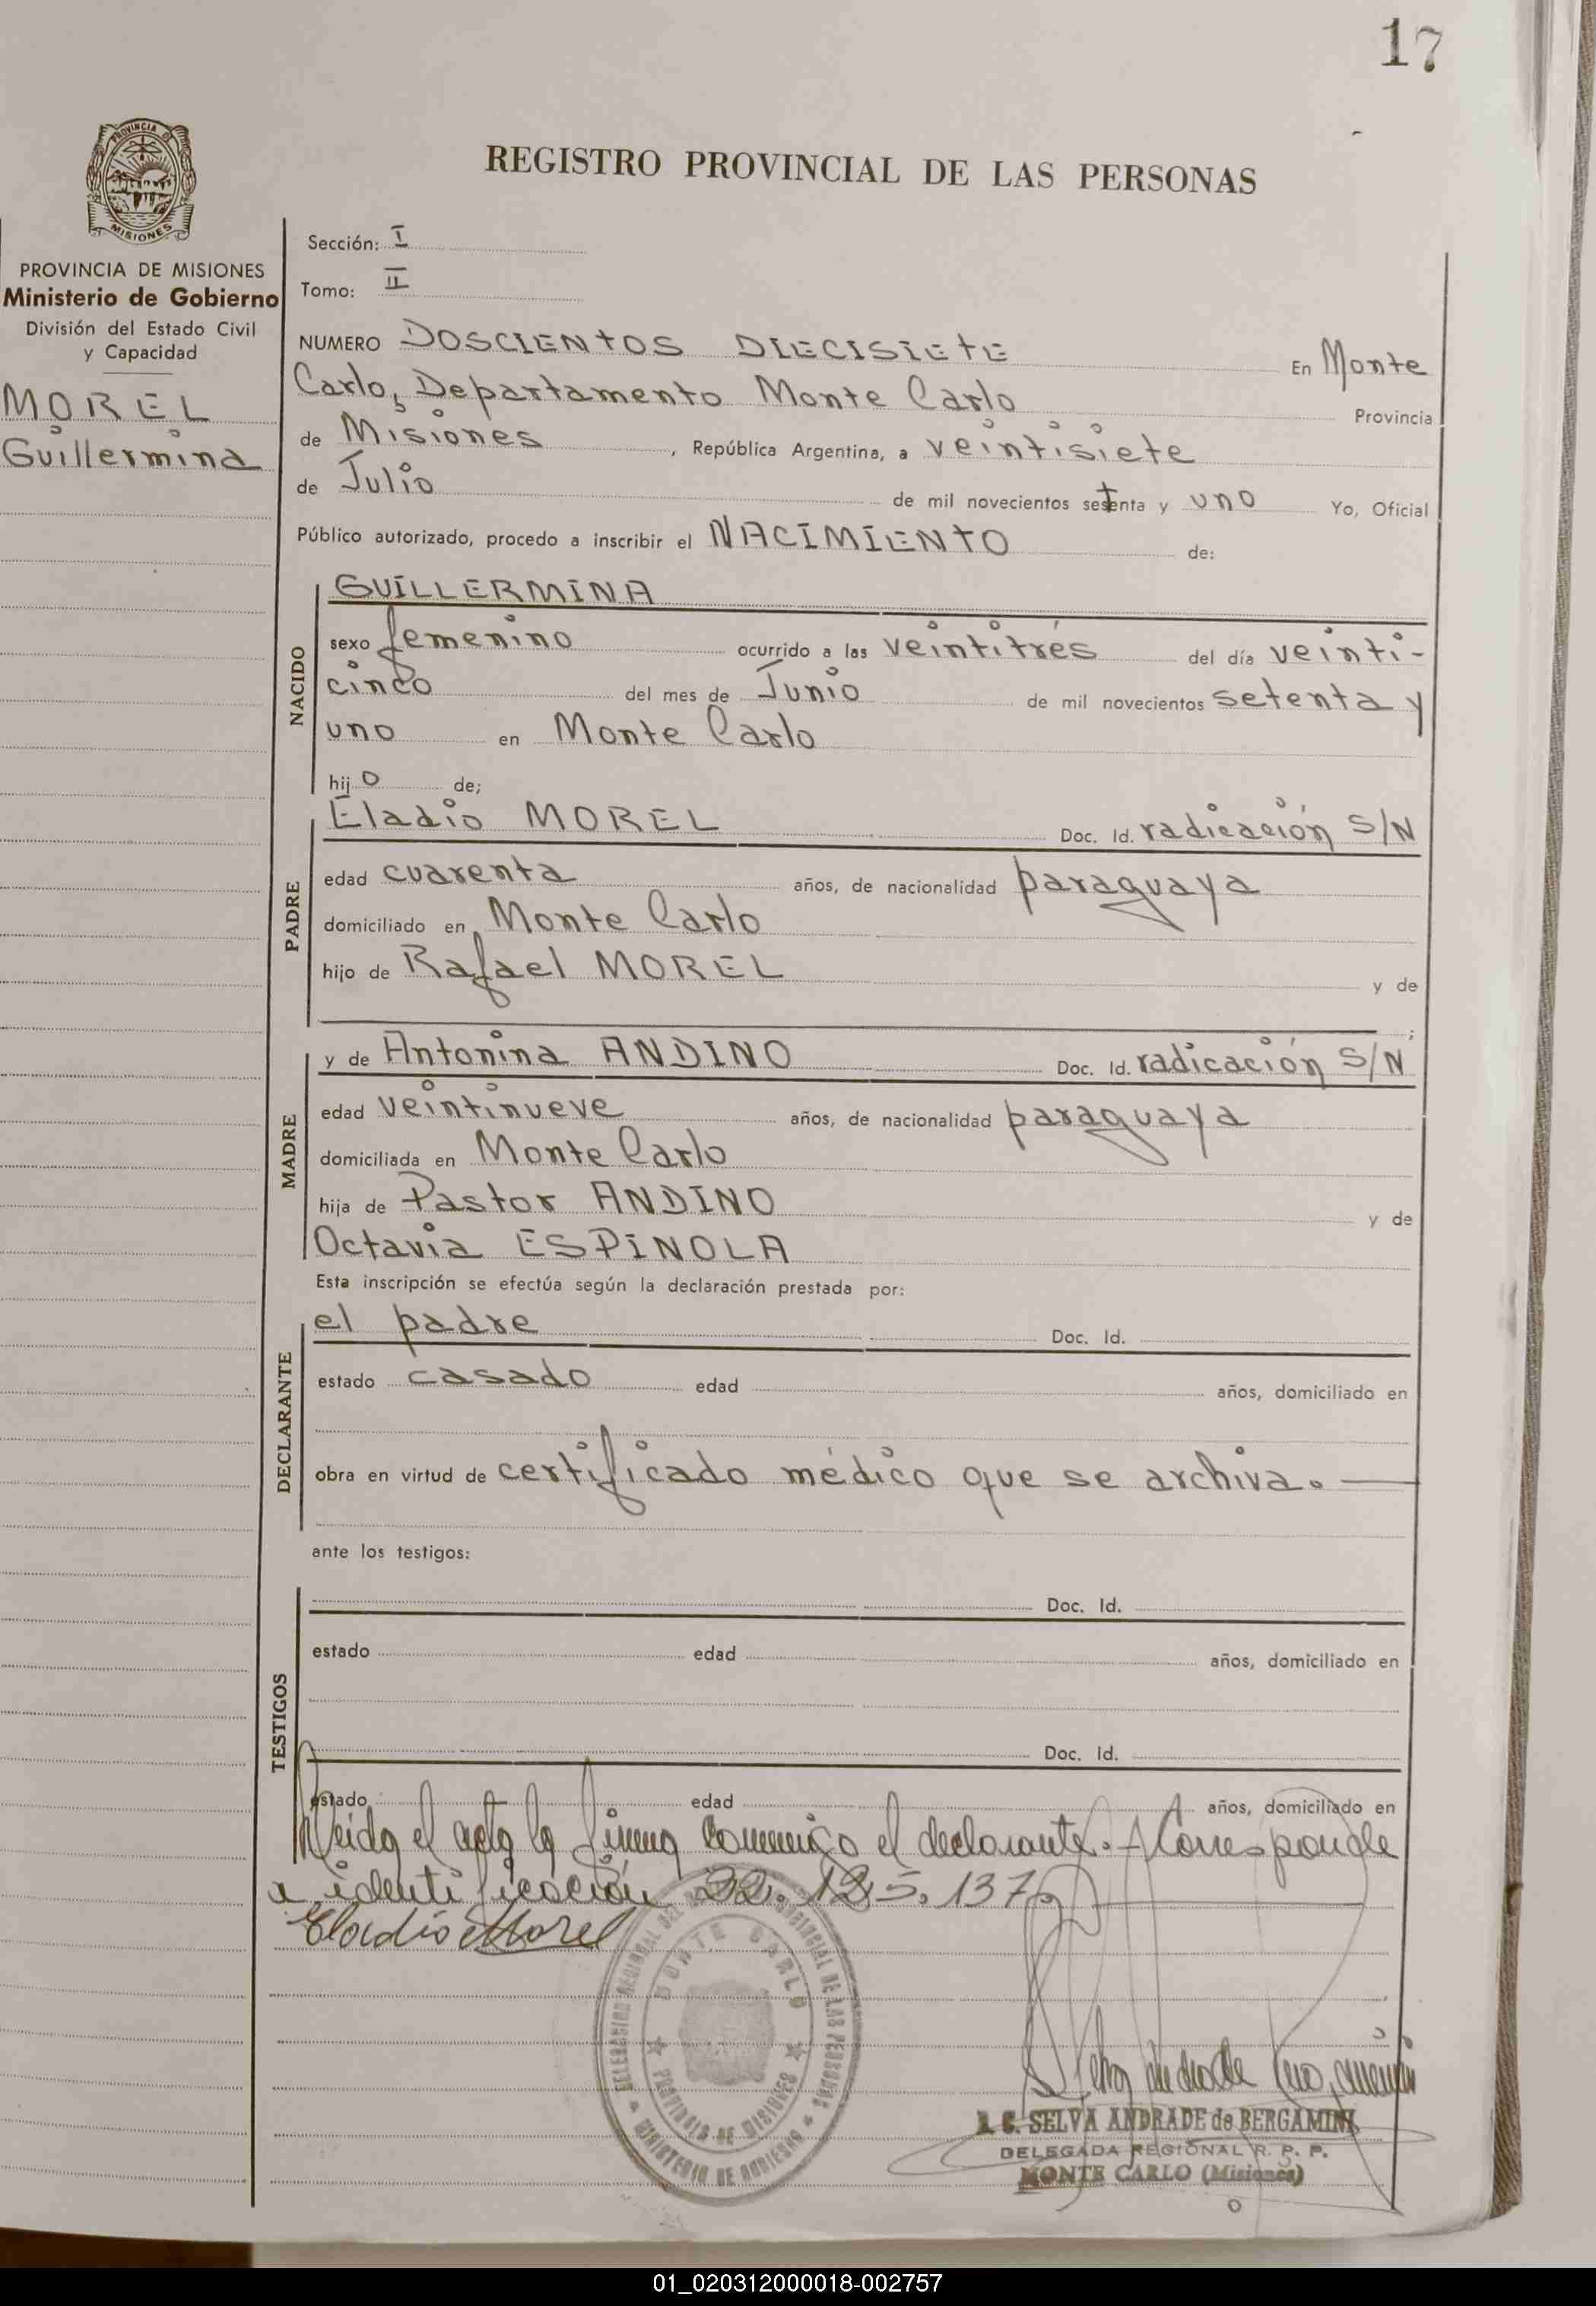 17
REGISTRO PROVINCIAL DE LAS PERSONAS
PROVINCIA DE MISIONES
PROVINCIA DE MISIONES
Ministerio de Gobierno
División del Estado Civil
y Capacidad
MOREL
Guillermina
Sección: I
Tomo: II
NUMERO DOSCIENTOS DIECISIETE En Monte
Carlo, Departamento Monte Carlo Provincia
de Misiones, República Argentina, a veintisiete
de Julio de mil novecientos setenta y uno Yo, Oficial
Público autorizado, procedo a inscribir el NACIMIENTO de:
NACIDO
GUILLERMINA
sexo femenino ocurrido a las veintitrés del día veinti-
cinco del mes de Junio de mil novecientos setenta y
uno en Monte Carlo
hijo de;
PADRE
Eladio MOREL Doc. Id. radicación S/N
edad cuarenta años, de nacionalidad paraguaya
domiciliado en Monte Carlo
hijo de Rafael MOREL y de
;
MADRE
y de Antonina ANDINO Doc. Id. radicación S/N
edad veintinueve años, de nacionalidad paraguaya
domiciliada en Monte Carlo
hija de Pastor ANDINO y de
Octavia ESPINOLA
Esta inscripción se efectúa según la declaración prestada por:
DECLARANTE
el padre Doc. Id.
estado casado edad años, domiciliado en
obra en virtud de certificado médico que se archiva.
ante los testigos:
TESTIGOS
Doc. Id.
estado edad años, domiciliado en
Doc. Id.
estado edad años, domiciliado en
Leida el acta la firma conmigo el declarante.- Corresponde
a identificación 22.125.137
Eladio Morel
DELEGACION REGIONAL DEL REGISTRO PROVINCIAL DE LAS PERSONAS
MONTE CARLO
PROVINCIA DE MISIONES
MINISTERIO DE GOBIERNO
SELVA ANDRADE de BERGAMINI
DELEGADA REGIONAL R. P. P.
MONTE CARLO (Misiones)
01_020312000018-002757